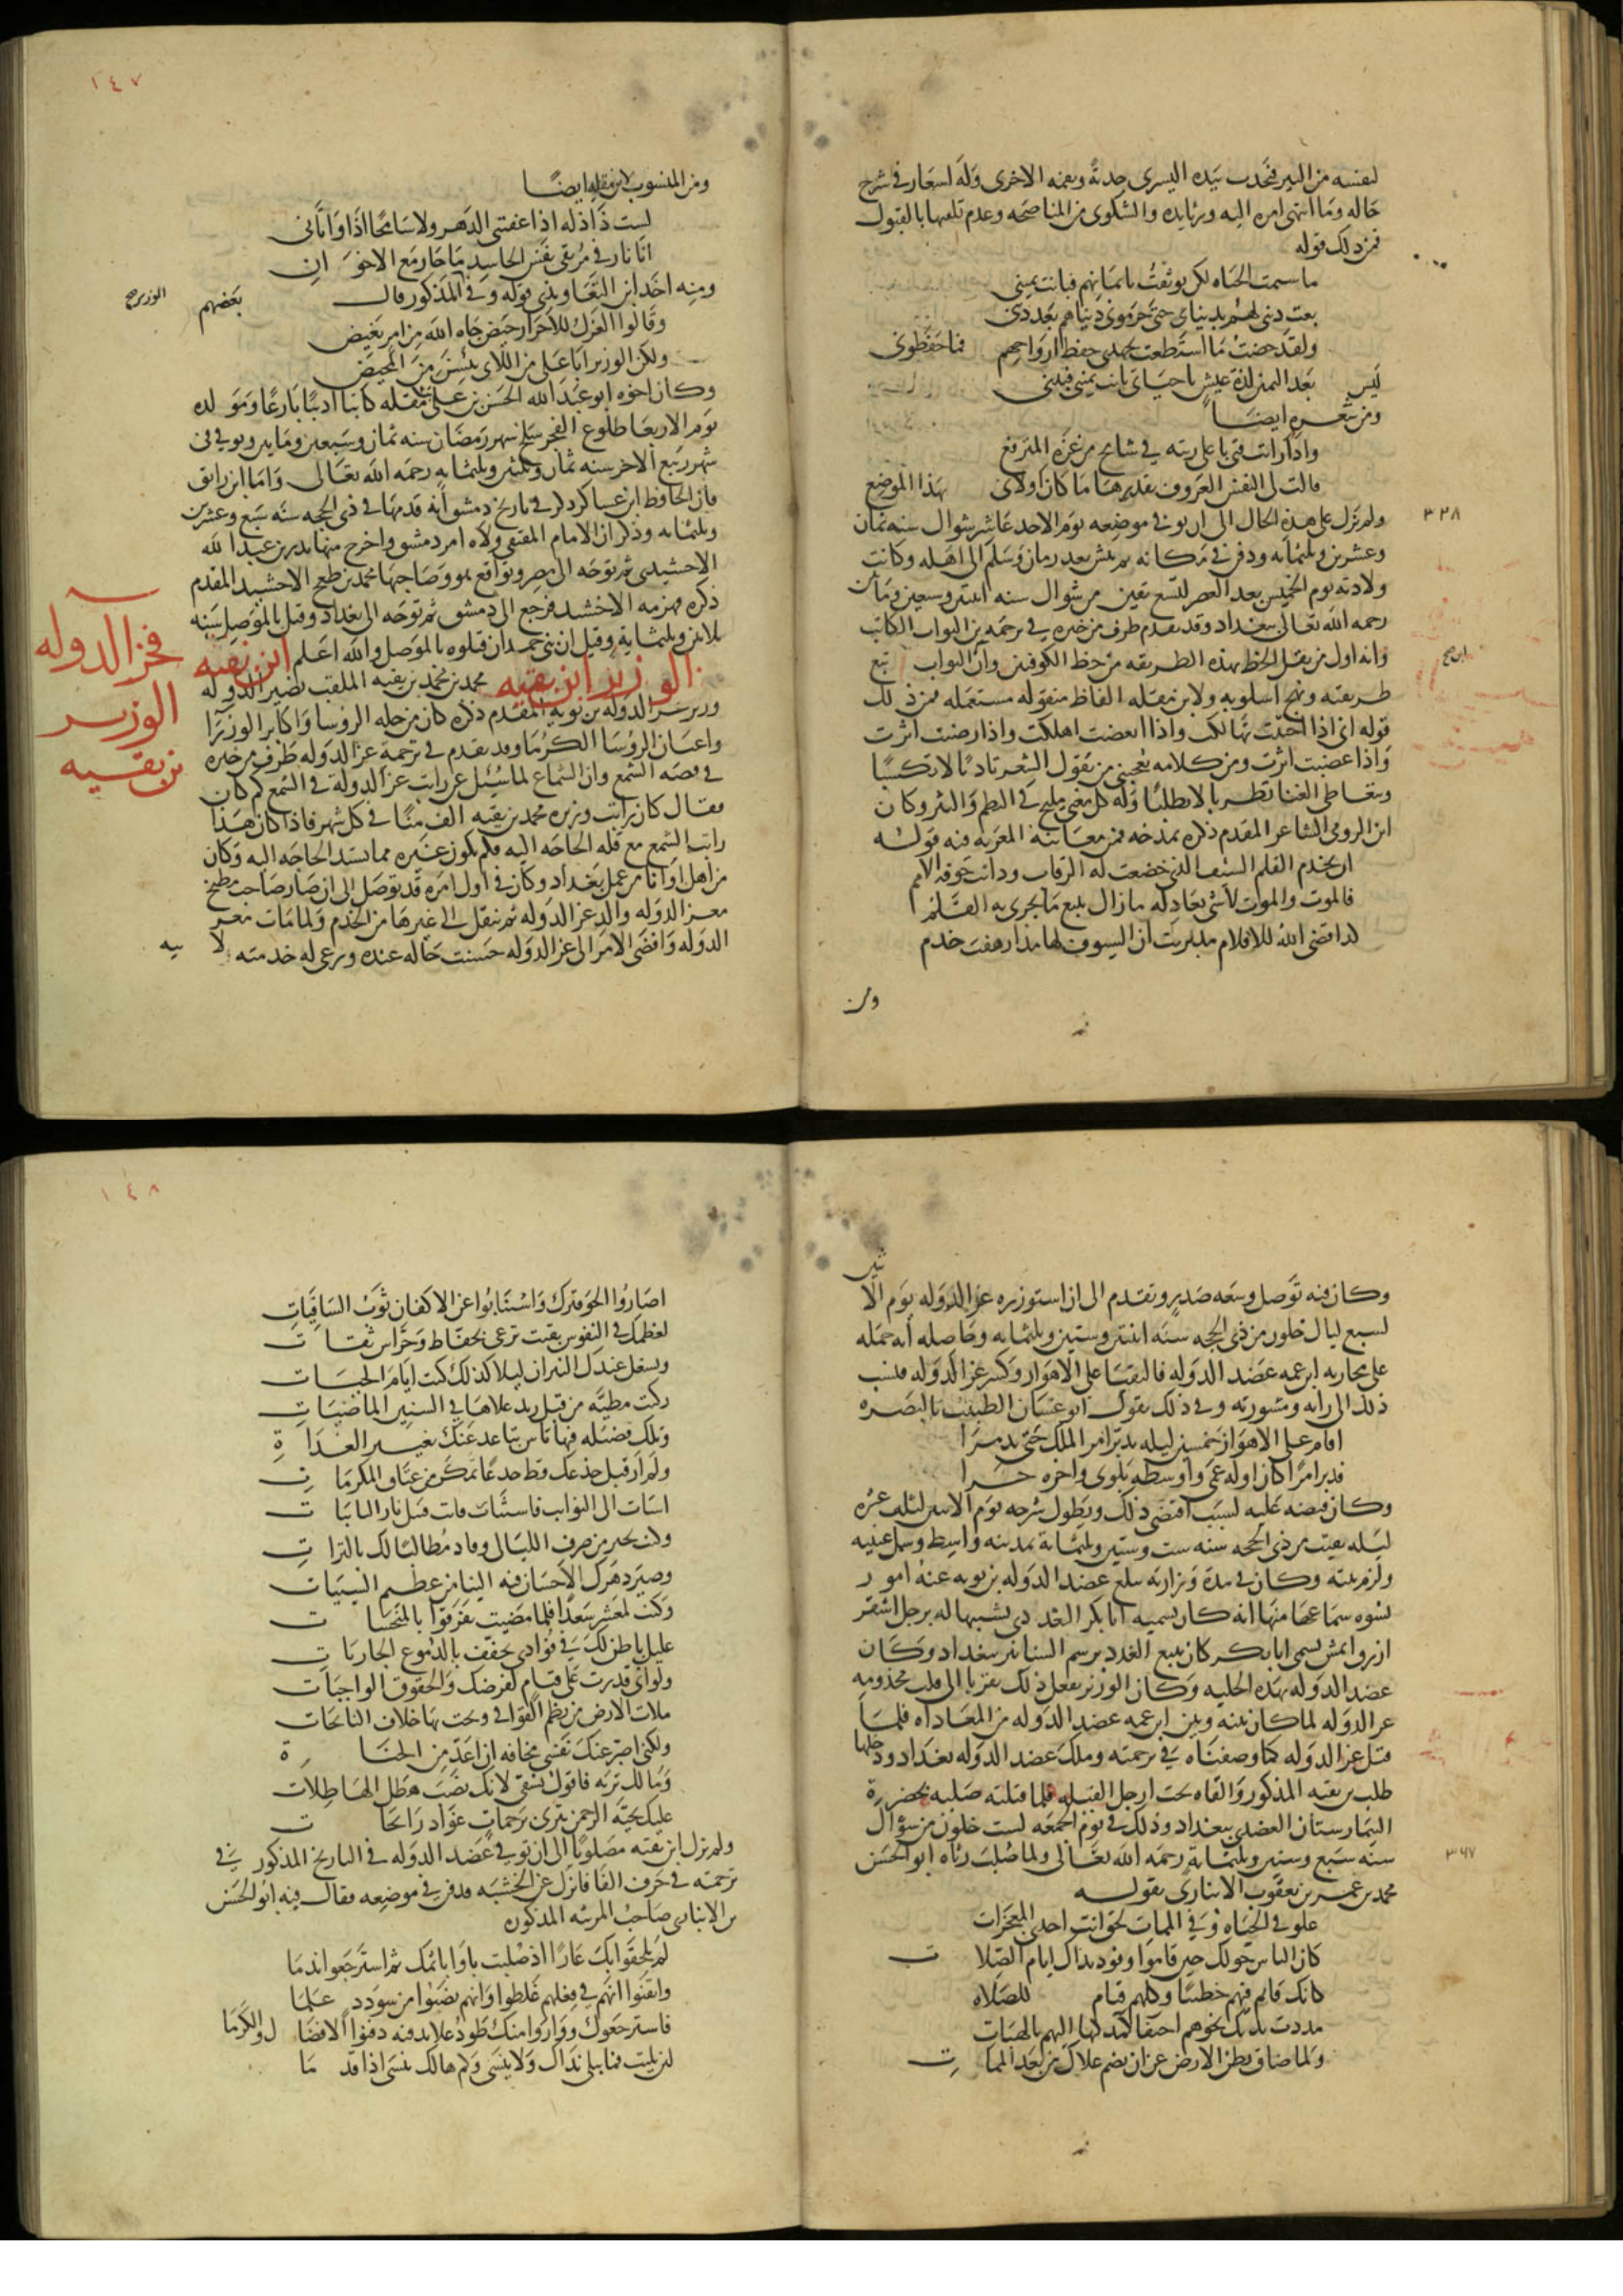 لنفسه من البير فيجذب بيده اليسرى جذبة وبفمه الاخرى وله اشعار في شرح
حاله وما انتهى امره اليه ورثا يده والشكوى من المناصحه وعدم تلقيها بالقبول
فمن ذلك قوله
ما سئمت الحياه لكن توثقت بايمانهم فبانت يميني
بعت ديني لهم بدنياي حتى حرموني دنياهم بعد ديني
ولقد حطت ما استطعت بجهدي حفظ ارواحهم فما حفظوني
ليس بعد اليمين لذة عيش يا حياتي بانت يميني فبيني
ومن شعره ايضا
واذا رايت فتى باعلى رتبه في شامخ من عزه المترفع
قالت لي النفس العروف بقدرها ما كان اولاني بهذا الموضع
٣٢٨
ولم يزل على هذه الحال الى ان توفي في موضعه يوم الاحد عاشر شوال سنه ثمان
وعشرين وثلثمايه ودفن في مكانه ثم نبش بعد زمان وسلم الى اهله وكانت
ولادته يوم الخميس بعد العصر لتسع بقين من شوال سنه اثنتين وسبعين ومايتين
رحمه الله تعالى ببغداد وقد تقدم طرف من خبره في ترجمه بن البواب الكاتب
وانه اول من نقل الخط بهذه الطريقه من خط الكوفيين وان البواب تبع
ابن صح
طريقته ونهج اسلوبه ولابن مقله الفاظ منقوله مستعمله فمن ذلك
قوله اني اذا احببت تهالكت واذا ابغضت اهلكت واذا رضيت اثرت
واذا غضبت اثرت ومن كلامه يعجبني من يقول الشعر تادبا لا تكسبا
ويتعاطى الغنا تطربا لا تطلبا وله كل معنى مليح في النظم والنثر وكان
ابن الرومي الشاعر المقدم ذكره يمدحه فمن معانيه المغربه فيه قوله
ان يخدم القلم السيف الذي خضعت له الرقاب ودانت خوفه الامم
فالموت والموت لا شي يعادله ما زال يتبع ما يجرى به القلم
لذا قضى الله للاقلام مذ بريت ان السيوف لها مذ ارهفت خدم
ومن
١٤٧
ومن المنسوب لابن مقله ايضا
لست ذا ذله اذا عضني الدهر ولا شامخا اذا واتاني
انا نار في مرتقى نفس الحاسد ما جار مع الاخوان
ومنه اخذ ابن التعاويذي قوله وفي المذكور قال بعضهم
الوزير صح
وقالوا العزل للاحرار حيض لحاه الله من امر بغيض
ولكن الوزير ابا علي من اللاى يئسن من المحيض
وكان اخوه ابو عبد الله الحسن بن علي مقله كاتبا اديبا بارعا ومولده
يوم الاربعا طلوع الفجر سلخ شهر رمضان سنه ثمان وسبعين ومايتين وتوفي في
شهر ربيع الاخر سنه ثمان وثلثين وثلثمايه رحمه الله تعالى واما ابن رائق
فان الحافظ ابن عساكر ذكر في تاريخ دمشق انه قدمها في ذي الحجه سنه سبع وعشرين
وثلثمايه وذكر ان الامام المتقي ولاه امر دمشق واخرج منها بدر بن عبد الله
الاخشيدى ثم توجه الى مصر وتواقع هو وصاحبها محمد بن طغج الاخشيد المقدم
ذكره فهزمه الاخشيد فرجع الى دمشق ثم توجه الى بغداد وقتل بالموصل سنه
ثلاثين وثلثمايه وقيل ان بني حمدان قتلوه بالموصل والله اعلم ابن بقيه
فخر الدوله
الوزير
بن بقيه
الوزير ابن بقيه محمد بن محمد بن بقيه الملقب نصير الدوله
وزير عز الدوله بن بويه المقدم ذكره كان من جله الروسا واكابر الوزرا
واعيان الروسا الكرما وقد تقدم في ترجمة عز الدوله طرف من خبره
في قصه الشمع وان الشماع لما سئل عن راتب عز الدولة في الشمع كم كان
فقال كان راتب وزيره محمد بن بقيه الف منا في كل شهر فاذا كان هذا
راتب الشمع مع قله الحاجه اليه فكم يكون غيره مما تشتد الحاجه اليه وكان
من اهل اوانا من عمل بغداد وكان في اول امره قد توصل الى ان صار صاحب مطبخ
معز الدوله والد عز الدوله ثم تنقل الى غيرها من الخدم ولما مات معز
الدوله وافضى الامر الى عز الدوله حسنت حاله عنده ورعى له خدمته لابيه
وكان فيه توصل وسعه صدر وتقدم الى ان استوزره عز الدوله يوم الاثنين
لسبع ليال خلون من ذي الحجه سنه اثنتين وستين وثلثمايه وحاصله انه حمله
على محاربه ابن عمه عضد الدوله فالتقيا على الاهواز وكسر عز الدوله فنسب
ذلك الى رايه ومشورته وفي ذلك يقول ابو غسان الطبيب بالبصره
اقام على الاهواز خمسين ليله يدبر امر الملك حتى تدمرا
فدبر امرا كان اوله عمى واوسطه بلوى واخره خسرا
وكان قبضه عليه لسبب اقتضى ذلك ويطول شرحه يوم الاثنين لثلث عشره
ليله بقيت من ذي الحجه سنه ست وستين وثلثماية بمدينه واسط وسمل عينيه
ولزم بيته وكان في مدة وزارته يبلغ عضد الدوله بن بويه عنه امور
يسوه سماعها منها انه كان يسميه ابا بكر الغددي تشبيها له برجل اشقر
ازرق انمش يسمى ابا بكر كان يبيع الغدد برسم السنانير ببغداد وكان
عضد الدوله بهذه الحليه وكان الوزير يفعل ذلك تقربا الى قلب مخدومه
عز الدوله لما كان بينه وبين ابن عمه عضد الدوله من المعاداه فلما
قتل عز الدوله كما وصفناه في ترجمته وملك عضد الدوله بغداد ودخلها
طلب بن بقيه المذكور والقاه تحت ارجل الفيله فلما قتلته صلبه بحضرة
البيمارستان العضدي ببغداد وذلك في يوم الجمعه لست خلون من شوال
سنه سبع وستين وثلثمايه رحمه الله تعالى ولما صلب رثاه ابو الحسن
٣٦٧
محمد بن عمر بن يعقوب الانباري بقوله
علو في الحياه وفي الممات لحق انت احدى المعجزات
كان الناس حولك حين قاموا وفود نداك ايام الصلات
كانك قائم فيهم خطيبا وكلهم قيام للصلاه
مددت يديك نحوهم احتفالا كمدكها اليهم بالهبات
ولما ضاق بطن الارض عن ان يضم علاك من بعد الممات
١٤٨
اصاروا الجو قبرك واستنابوا عن الاكفان ثوب السافيات
لعظمك في النفوس بقيت ترعى بحفاظ وحراس ثقات
وتشعل عندك النيران ليلا كذلك كنت ايام الحيات
ركبت مطية من قبل زيد علاها في السنين الماضيات
وتلك فضيله فيها تاس تباعد عنك تعيير العداة
ولم ار قبل جذعك قط جذعا تمكن من عناق المكرمات
اسات الى النوايب فاستثارت فانت قتيل ثار النايبات
وكنت تجير من صرف الليالي وعاد مطالبا لك بالترات
وصير دهرك الاحسان فيه الينا من عظيم السيئات
وكنت لمعشر سعدا فلما مضيت تفرقوا بالمنحسات
غليل باطن لك في فؤادي يخفف بالدموع الجاريات
ولو اني قدرت على قيام لفرضك والحقوق الواجبات
ملات الارض من نظم القوافي ونحت بها خلاف النائحات
ولكني اصبر عنك نفسي مخافه ان اعد من الجناة
ومالك تربه فاقول تسقى لانك نصب هطل الهاطلات
عليك تحية الرحمن تترى برحمات غواد رائحات
ولم يزل ابن بقيه مصلوبا الى ان توفي عضد الدوله في التاريخ المذكور في
ترجمته في حرف الفا فانزل عن الخشبه ودفن في موضعه فقال فيه ابو الحسن
بن الانبارى صاحب المرثيه المذكوره
لم يلحقوا بك عارا اذ صلبت باوا باثمك ثم استرجعوا ندما
وايقنوا انهم في فعلهم غلطوا وانهم نصبوا من سودد علما
فاسترجعوك وواروا منك طود علا بدفنه دفنوا الافضال والكرما
لئن بليت فما يبلى نداك ولا ينسى وكم هالك ينسى اذا قدما